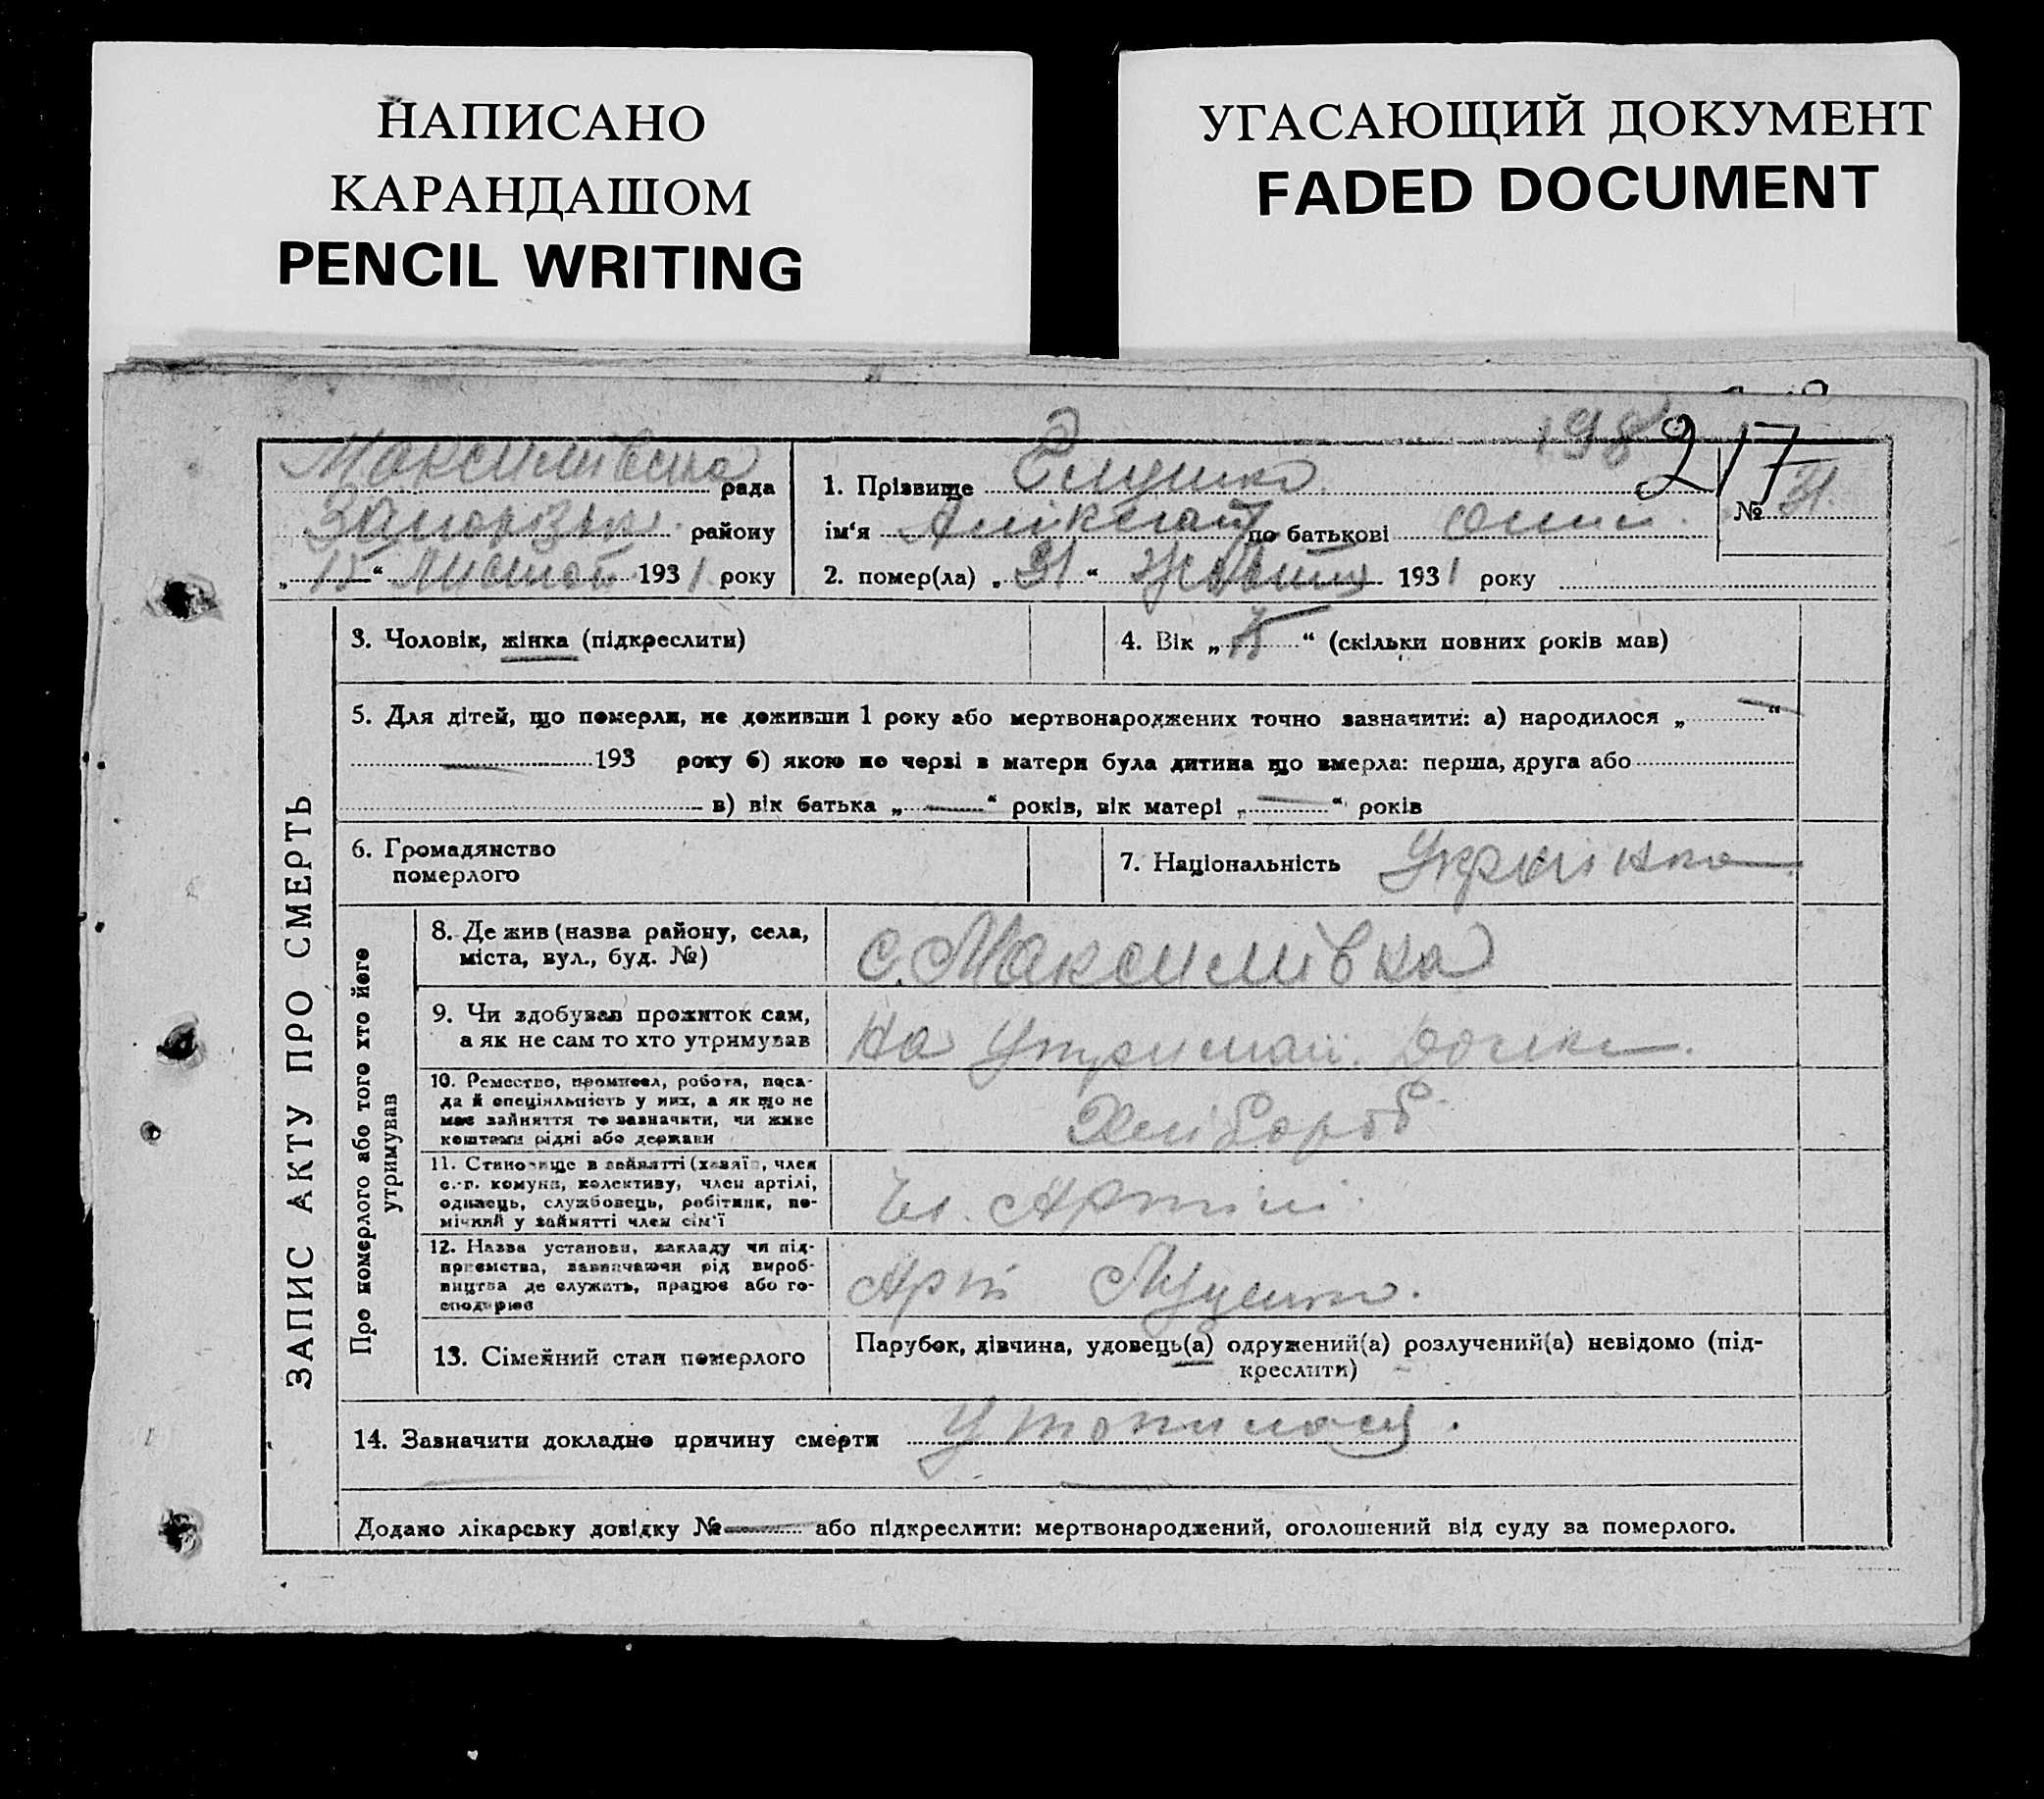 НАПИСАНО
КАРАНДАШОМ
PENCIL WRITING
УГАСАЮЩИЙ ДОКУМЕНТ
FADED DOCUMENT
198 217
Максимівська рада
району
„15“ Листоп 1931 року
1. Прізвище
№ 31.
ім‘я по батькові
2. помер(ла) „31“ Жовтня 1931 року
ЗАПИС АКТУ ПРО СМЕРТЬ
3. Чоловік, жінка (підкреслити)
4. Вік „ “ (скільки повних років мав)
5. Для дітей, що померли, не доживши 1 року або мертвонароджених точно зазначити: а) народилося „ — “
— 193 року б) якою по черзі в матери була дитина що вмерла: перша, друга або
в) вік батька „ — “ років, вік матері „ — “ років
6. Громадянство
померлого
7. Національність Українка
Про померлого або того хто його
утримував
8. Де жив (назва району, села,
міста, вул., буд. №)
с. Максимівка
9. Чи здобував прожиток сам,
а як не сам то хто утримував
На утриман. дочки.
10. Ремество, промисел, робота, поса-
да й спеціяльність у них, а як що не
має зайняття то зазначити, чи живе
коштами рідні або держави
Хлібороб
11. Становище в зайнятті (хазяїн, член
с.-г. комуни, колективу, член артілі,
одинець, службовець, робітник, по-
мічний у зайнятті член сім‘ї
Чл. Артілі
12. Назва установи, закладу чи під-
приємства, зазначаючи рід вироб-
ництва де служить, працює або го-
сподарює
Арт
13. Сімейний стан померлого
Парубок, дівчина, удовець(а) одружений(а) розлучений(а) невідомо (під-
креслити)
14. Зазначити докладно причину смерти Утопилася.
Додано лікарську довідку № — або підкреслити: мертвонароджений, оголошений від суду за померлого.